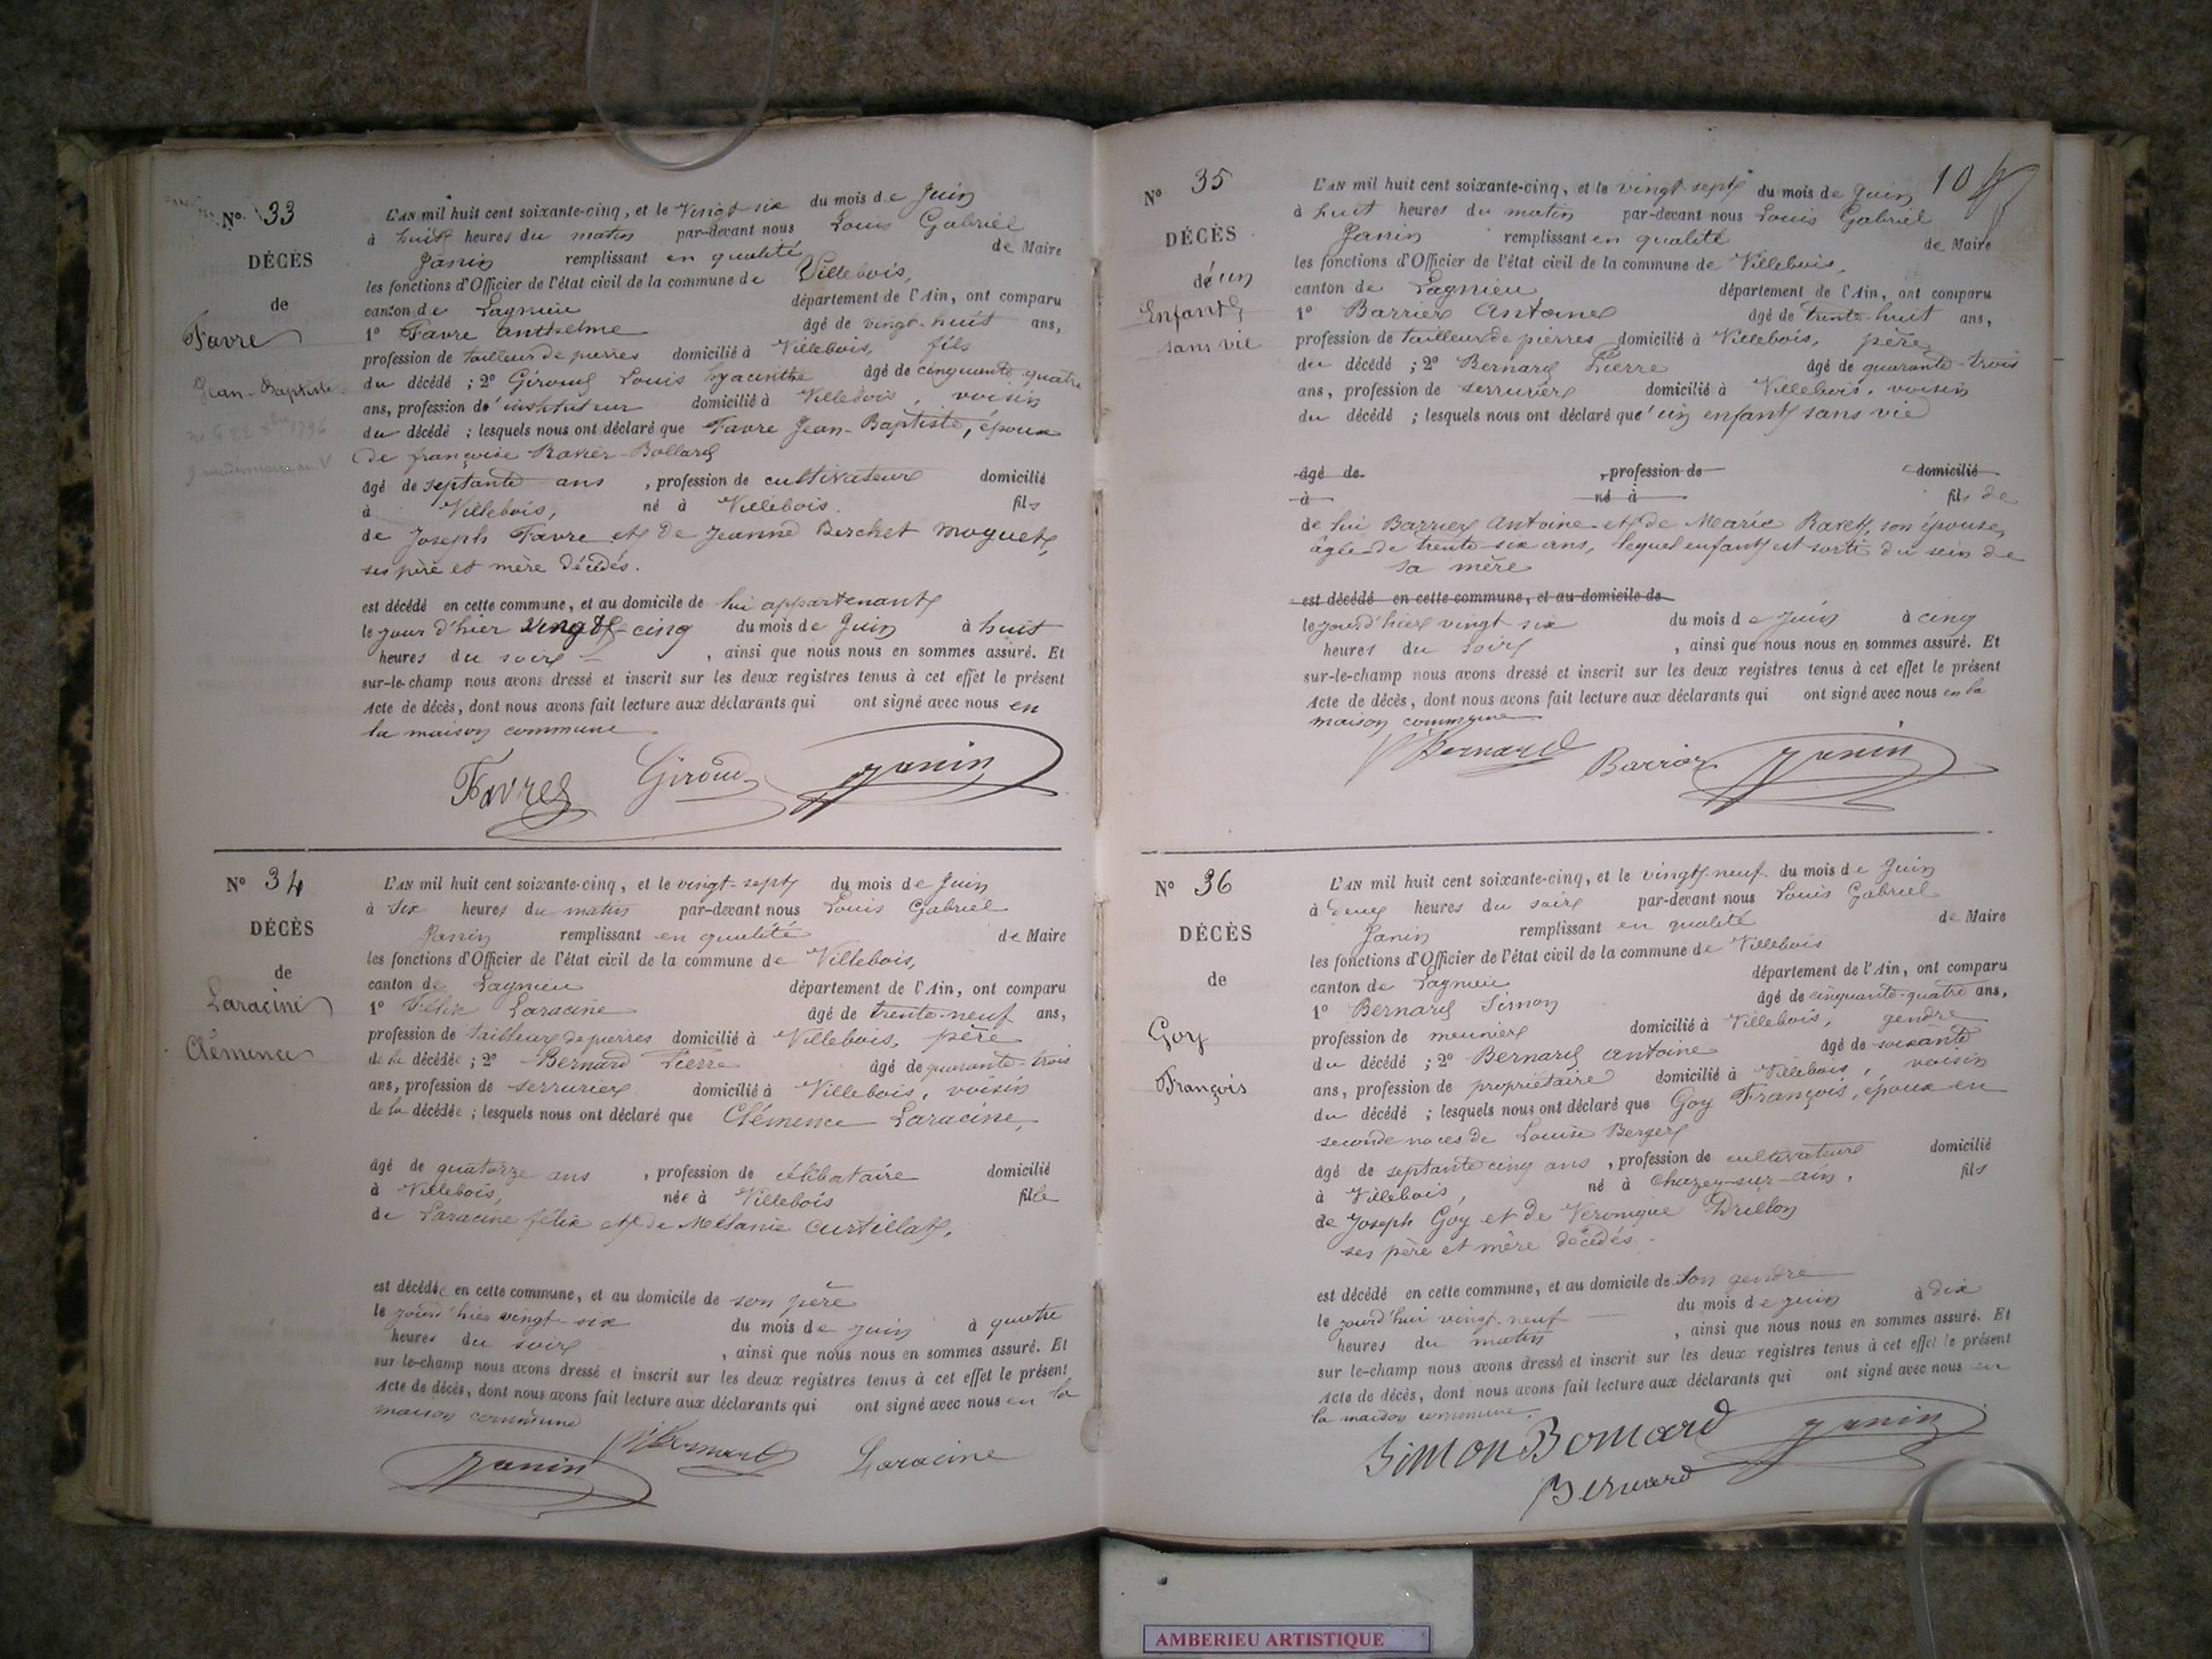 N° 33
DÉCÈS
de
Favre
Jean-Baptiste
L'AN mil huit cent soixante-cinq, et le vingt six du mois de Juin
à huit heures du matin par-devant nous Louis Gabriel
Janin remplissant en qualité de Maire
les fonctions d'Officier de l'état civil de la commune de Villebois,
canton de Lagnieu département de l'Ain, ont comparu
1° Favre Anthelme âgé de vingt-huit ans,
profession de tailleur de pierres domicilié à Villebois, fils
du décédé ; 2° Giroud Louis hyacinthe âgé de cinquante quatre
ans, profession d'instituteur domicilié à Villebois, voisin
du décédé ; lesquels nous ont déclaré que Favre Jean-Baptiste, époux
de françoise Ravier-Bollard
âgé de septante ans, profession de cultivateur domicilié
à Villebois, né à Villebois. fils
de Joseph Favre et de Jeanne Berchet moguet,
ses père et mère décédés.
est décédé en cette commune, et au domicile de lui appartenant
le jour d'hier vingt-cinq du mois de Juin à huit
heures du soir, ainsi que nous nous en sommes assuré. Et
sur-le-champ nous avons dressé et inscrit sur les deux registres tenus à cet effet le présent
Acte de décès, dont nous avons fait lecture aux déclarants qui ont signé avec nous en
la maison commune
Favre Giroud Janin
N° 34
DÉCÈS
de
Laracine
Clémence
L'AN mil huit cent soixante-cinq, et le vingt-sept du mois de Juin
à six heures du matin par-devant nous Louis Gabriel
Janin remplissant en qualité de Maire
les fonctions d'Officier de l'état civil de la commune de Villebois,
canton de Lagnieu département de l'Ain, ont comparu
1° Félix Laracine âgé de trente-neuf ans,
profession de tailleur de pierres domicilié à Villebois, père
de la décédée ; 2° Bernard Pierre âgé de quarante-trois
ans, profession de serrurier domicilié à Villebois, voisin
de la décédée ; lesquels nous ont déclaré que Clémence Laracine,
âgé de quatorze ans, profession de célibataire domicilié
à Villebois, née à Villebois fille
de Laracine félix et de Mélanie Curtillat,
est décédée en cette commune, et au domicile de son père
le jour d'hier vingt-six du mois de juin à quatre
heures du soir, ainsi que nous nous en sommes assuré. Et
sur-le-champ nous avons dressé et inscrit sur les deux registres tenus à cet effet le présent
Acte de décès, dont nous avons fait lecture aux déclarants qui ont signé avec nous en la
maison commune
Janin Bernard Laracine
10
N° 35
DÉCÈS
d'un
Enfant
sans vie
L'AN mil huit cent soixante-cinq, et le vingt sept du mois de Juin
à huit heures du matin par-devant nous Louis Gabriel
Janin remplissant en qualité de Maire
les fonctions d'Officier de l'état civil de la commune de Villebois,
canton de Lagnieu département de l'Ain, ont comparu
1° Barrier Antoine âgé de trente-huit ans,
profession de tailleur de pierres domicilié à Villebois, père
du décédé ; 2° Bernard Pierre âgé de quarante-trois
ans, profession de serrurier domicilié à Villebois, voisin
du décédé ; lesquels nous ont déclaré qu'un enfant sans vie
âgé de, profession de domicilié
à né à fils de
de lui Barrier Antoine et de Marie Ravet, son épouse,
âgée de trente-six ans, lequel enfant est sorti du sein de
sa mère
est décédé en cette commune, et au domicile de
le jour d'hier vingt six du mois de Juin à cinq
heures du soir, ainsi que nous nous en sommes assuré. Et
sur-le-champ nous avons dressé et inscrit sur les deux registres tenus à cet effet le présent
Acte de décès, dont nous avons fait lecture aux déclarants qui ont signé avec nous en la
maison commune
Bernard Barrier Janin
N° 36
DÉCÈS
de
Goy
François
L'AN mil huit cent soixante-cinq, et le vingt-neuf du mois de Juin
à deux heures du soir par-devant nous Louis Gabriel
Janin remplissant en qualité de Maire
les fonctions d'Officier de l'état civil de la commune de Villebois
canton de Lagnieu département de l'Ain, ont comparu
1° Bernard Simon âgé de cinquante-quatre ans,
profession de meunier domicilié à Villebois, gendre
du décédé ; 2° Bernard Antoine âgé de soixante
ans, profession de propriétaire domicilié à Villebois, voisin
du décédé ; lesquels nous ont déclaré que Goy François, époux en
seconde noces de Louise Berger
âgé de septante cinq ans, profession de cultivateur domicilié
à Villebois, né à Chazey-sur-ain, fils
de Joseph Goy et de Véronique Drillon
ses père et mère décédés.
est décédé en cette commune, et au domicile de son gendre
le jourd'hui vingt neuf du mois de juin à dix
heures du matin, ainsi que nous nous en sommes assuré. Et
sur le-champ nous avons dressé et inscrit sur les deux registres tenus à cet effet le présent
Acte de décès, dont nous avons fait lecture aux déclarants qui ont signé avec nous en
la maison commune.
Simon Bernard Janin
Bernard
AMBERIEU ARTISTIQUE